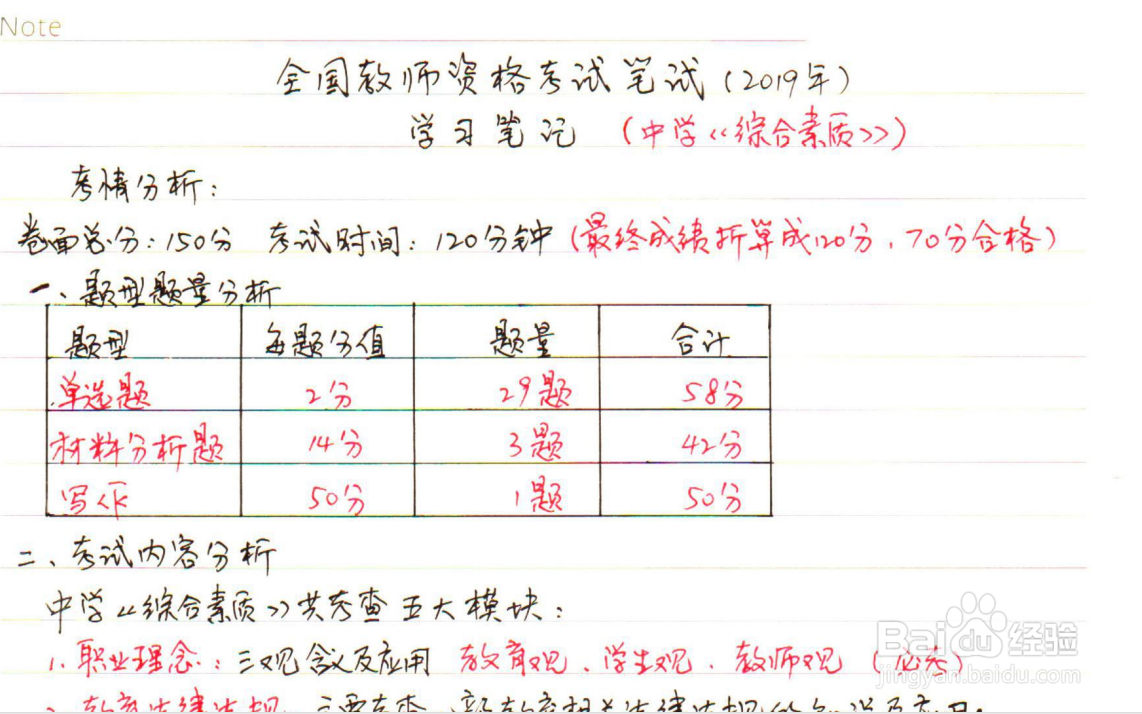 Note
全国教师资格考试笔试(2019年)
学习笔记 (中学《综合素质》)
考情分析:
卷面总分:150分 考试时间:120分钟(最终成绩折算成120分,70分合格)
一、题型题量分析
题型 每题分值 题量 合计
单选题 2分 29题 58分
材料分析题 14分 3题 42分
写作 50分 1题 50分
二、考试内容分析
中学《综合素质》共考查五大模块:
1.职业理念:三观含义及应用 教育观、学生观、教师观(必考)
Baidu经验
jingyan.baidu.com
教育法律法规 主要考查